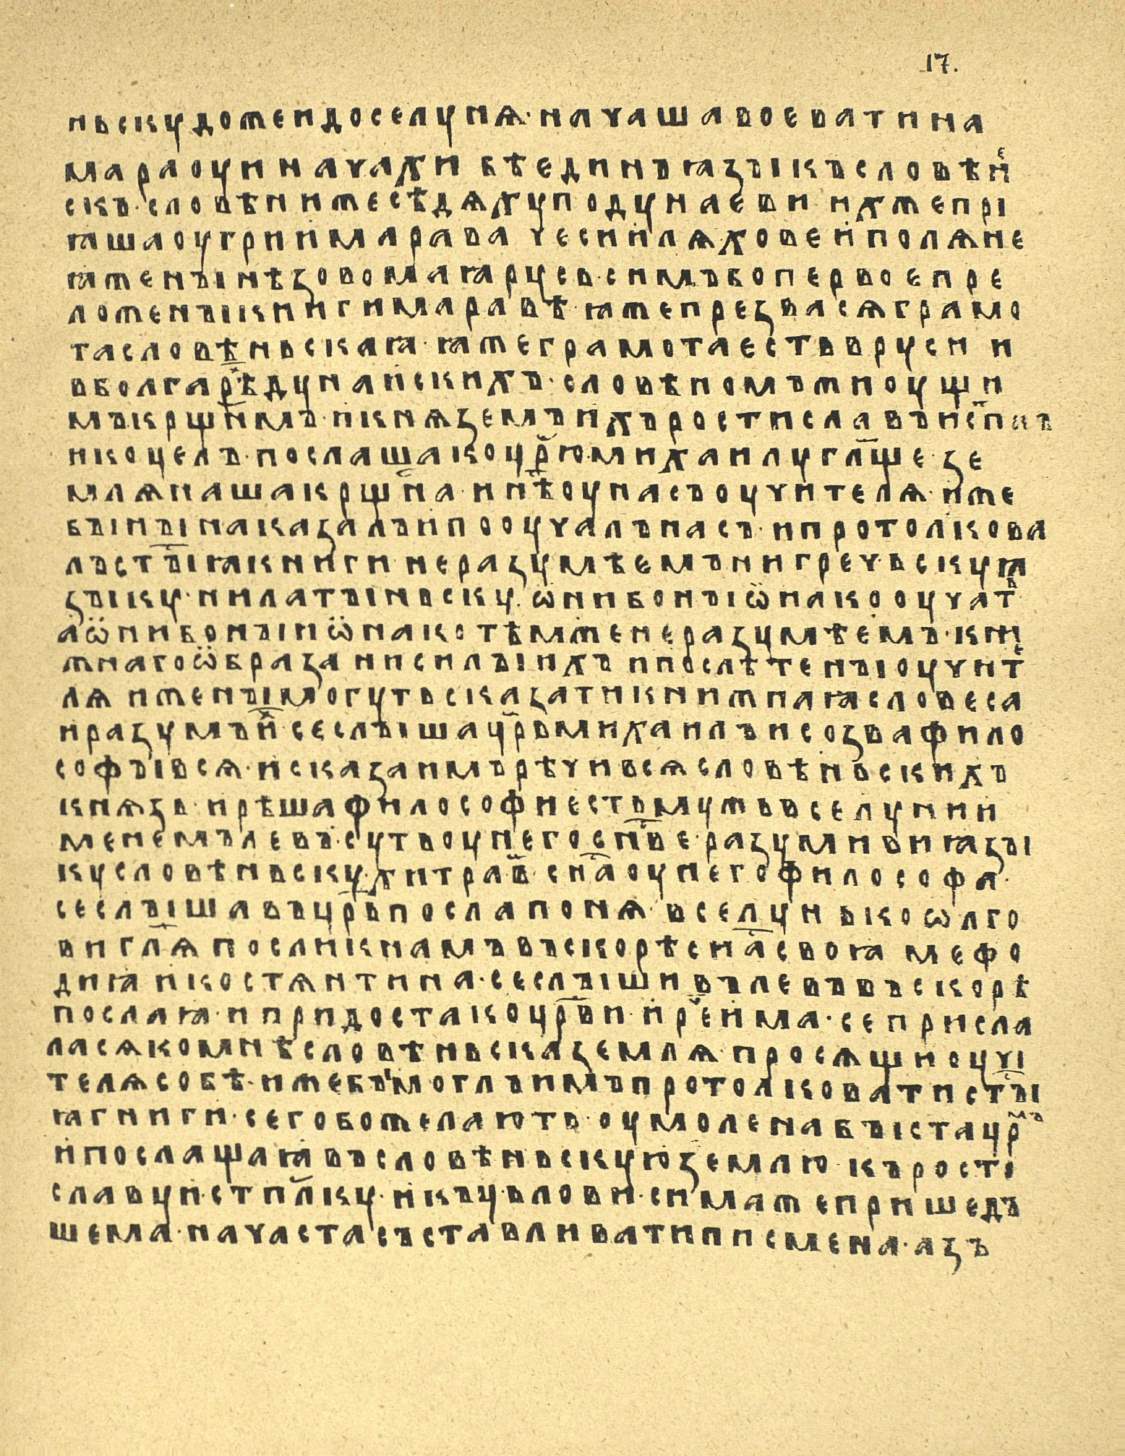 17.
ньскꙋдожеидоселꙋнѧ·начашавоеватина
мараоуиначахи бѣединъꙗзъікъсловѣнⷭ
скъ·словѣнижесѣдѧхꙋподꙋнаеви ихжепрі
ꙗшаоугрииимарава чесииляховеиполѧне
ꙗженъінѣзовомаꙗрꙋсь·симъбопервоепре
ложенъікнигимаравѣ·ꙗжепрезвасѧграмо
тасловѣньскаꙗ·ꙗжеграмотаестьврꙋси и
вболгарѣ҇дꙋнаискихъ·словѣномъжиоущи
мъкрщ҃нмъ·икнѧземъихъростиславъис҃тпкъ
икоцелъ·послашакоцр҃юмихаилꙋгл҃ще зе
млѧнашакрщ҃на·инѣ҇оунасъоучителѧ·иже
бъінъінаказалъипооучалънасъ·ипротолкова
лъст҃ъіꙗкниги неразꙋмѣемъни гречьскꙋꙗ
зъікꙋ·нилатъіньскꙋ·ѡ҃нибонъіѡ҃накооучат҇
аѡ҃нибонъіиѡ҃накотѣмженеразꙋмѣемъ·кни
жнагоѡ҃бразанисилъіихъ ипослѣтенъіоучит҇
лѧ иженъімогꙋтьсказатикнижнаꙗсловеса
иразꙋмъи҇ сеслъішацр҃ьмихаилъисозвафило
софъівсѧ·исказаимърѣчивсѧсловѣньскихъ
кнѧзь ирѣшафилософиест҃ьмꙋжьвселꙋнии
менемълевъ·сꙋтьоунегос҃нвⷪе·разꙋмивиꙗзъі
кꙋсловѣньскꙋ·хитрад҃ва с҃наоунегофилософа·
сеслъішавъцр҃ьпослапонѧ·вселꙋнькоѡлго
вигл҃ѧпосликнамъвъскорѣс҃насвоꙗ мефо
диꙗ икостѧнтина·сеслъішивълевъвъскорѣ
послаꙗ·ипридостакоцр҃ви·ир҇еима·сеприсла
ласѧкомнѣсловѣньсказемлѧ·просѧщиоучі
телѧсобѣ·ижебъімоглъимъпротолковатист҃ъі
ꙗгниги·сегобожелають·оумоленабъістацр҃мъ
ипослашаꙗвъсловѣньскꙋюземлю кърості
славꙋи·стпл҃кꙋ·икъцьлови·симажепришедъ
шема·начастасъставливатиписмена·азъ